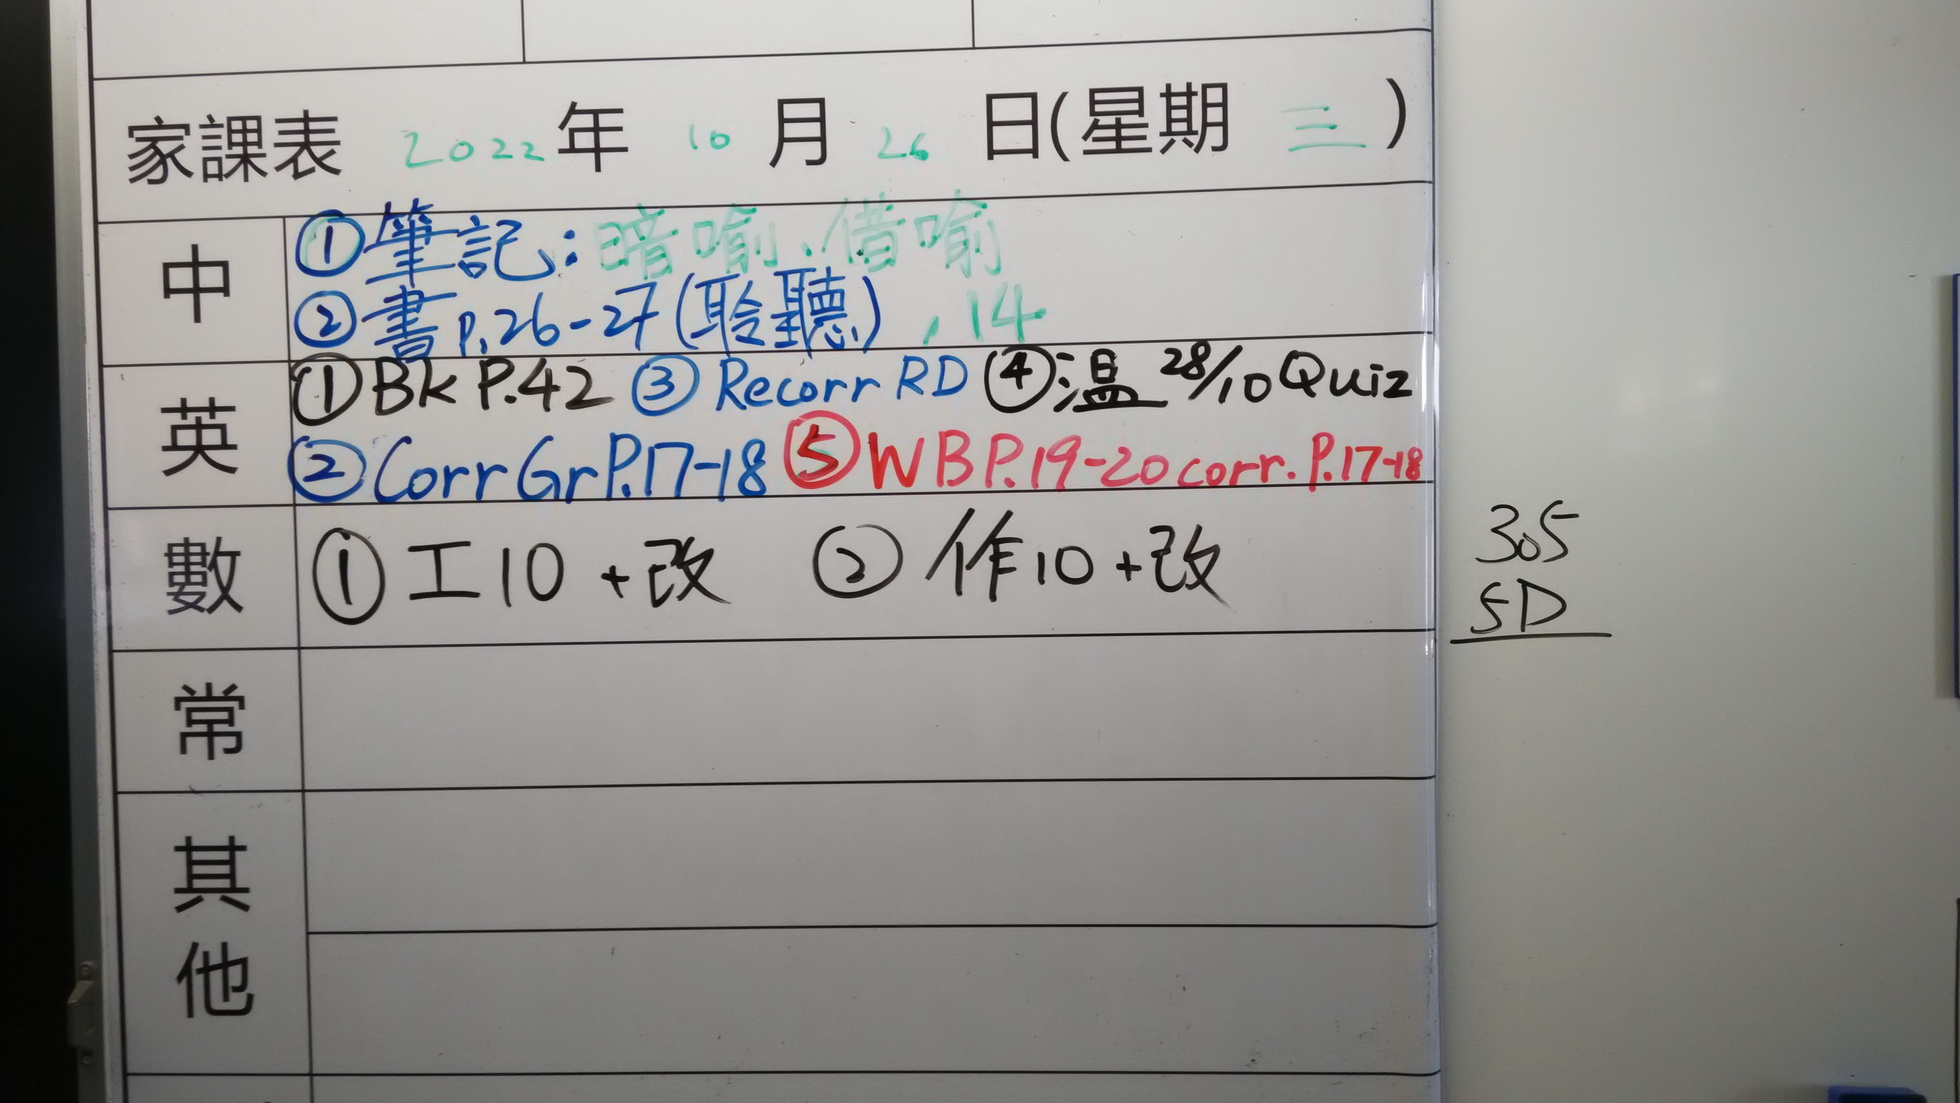 家課表 2022年 10月 26日(星期三)
中
①筆記:暗喻、借喻
②書p.26-27(聆聽),14
英
①BK P.42 ③Recorr RD ④溫28/10 Quiz
②Corr Gr P.17-18 ⑤WB P.19-20 corr. P.17-18
數
①工10+改 ②作10+改
常
其他
305
5D